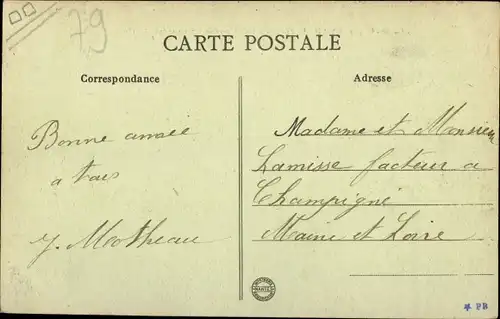 79
CARTE POSTALE
Correspondance
Adresse
Bonne année
a tous
J. Motheau
Madame et Monsieur
Lamisse facteur a
Champigné
Maine et Loire
* PB